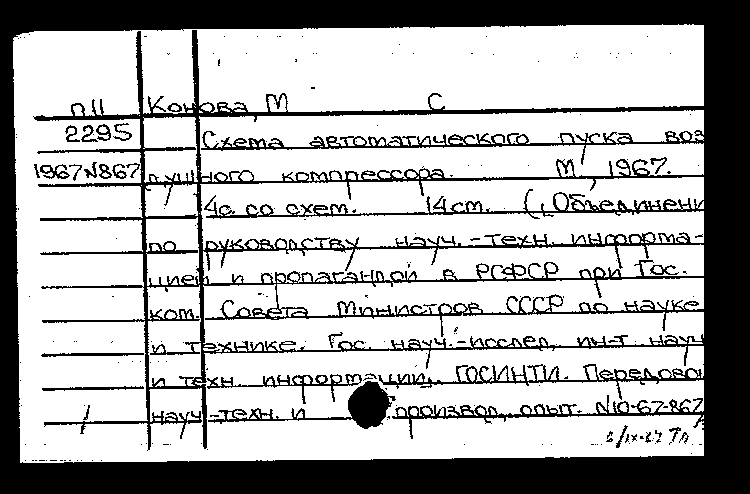 п.11 Конова, М С
2295 Схема автоматического пуска воз
1967 N867 душного компрессора. М, 1967.
4с. со схем. 14 см. (,,Объединени
по руководству науч.-техн. информа-
цией и пропагандой в РСФСР при Гос.
ком. Совета Министров СССР по науке
и технике. Гос. науч.-исслед. ин-т науч
и техн. информации. ГОСИНТИ. Передово
науч.-техн. и производ. опыт. N10-67-867